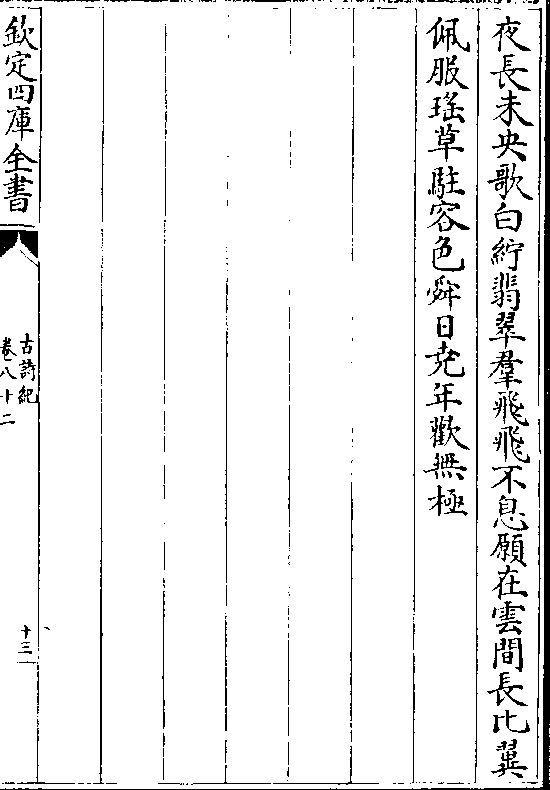 夜長未央歌白紵翡翠羣飛飛不息願在雲間長比翼
佩服瑤草駐容色舜日堯年歡無極
欽定四庫全書
古詩紀
卷八十二
十三